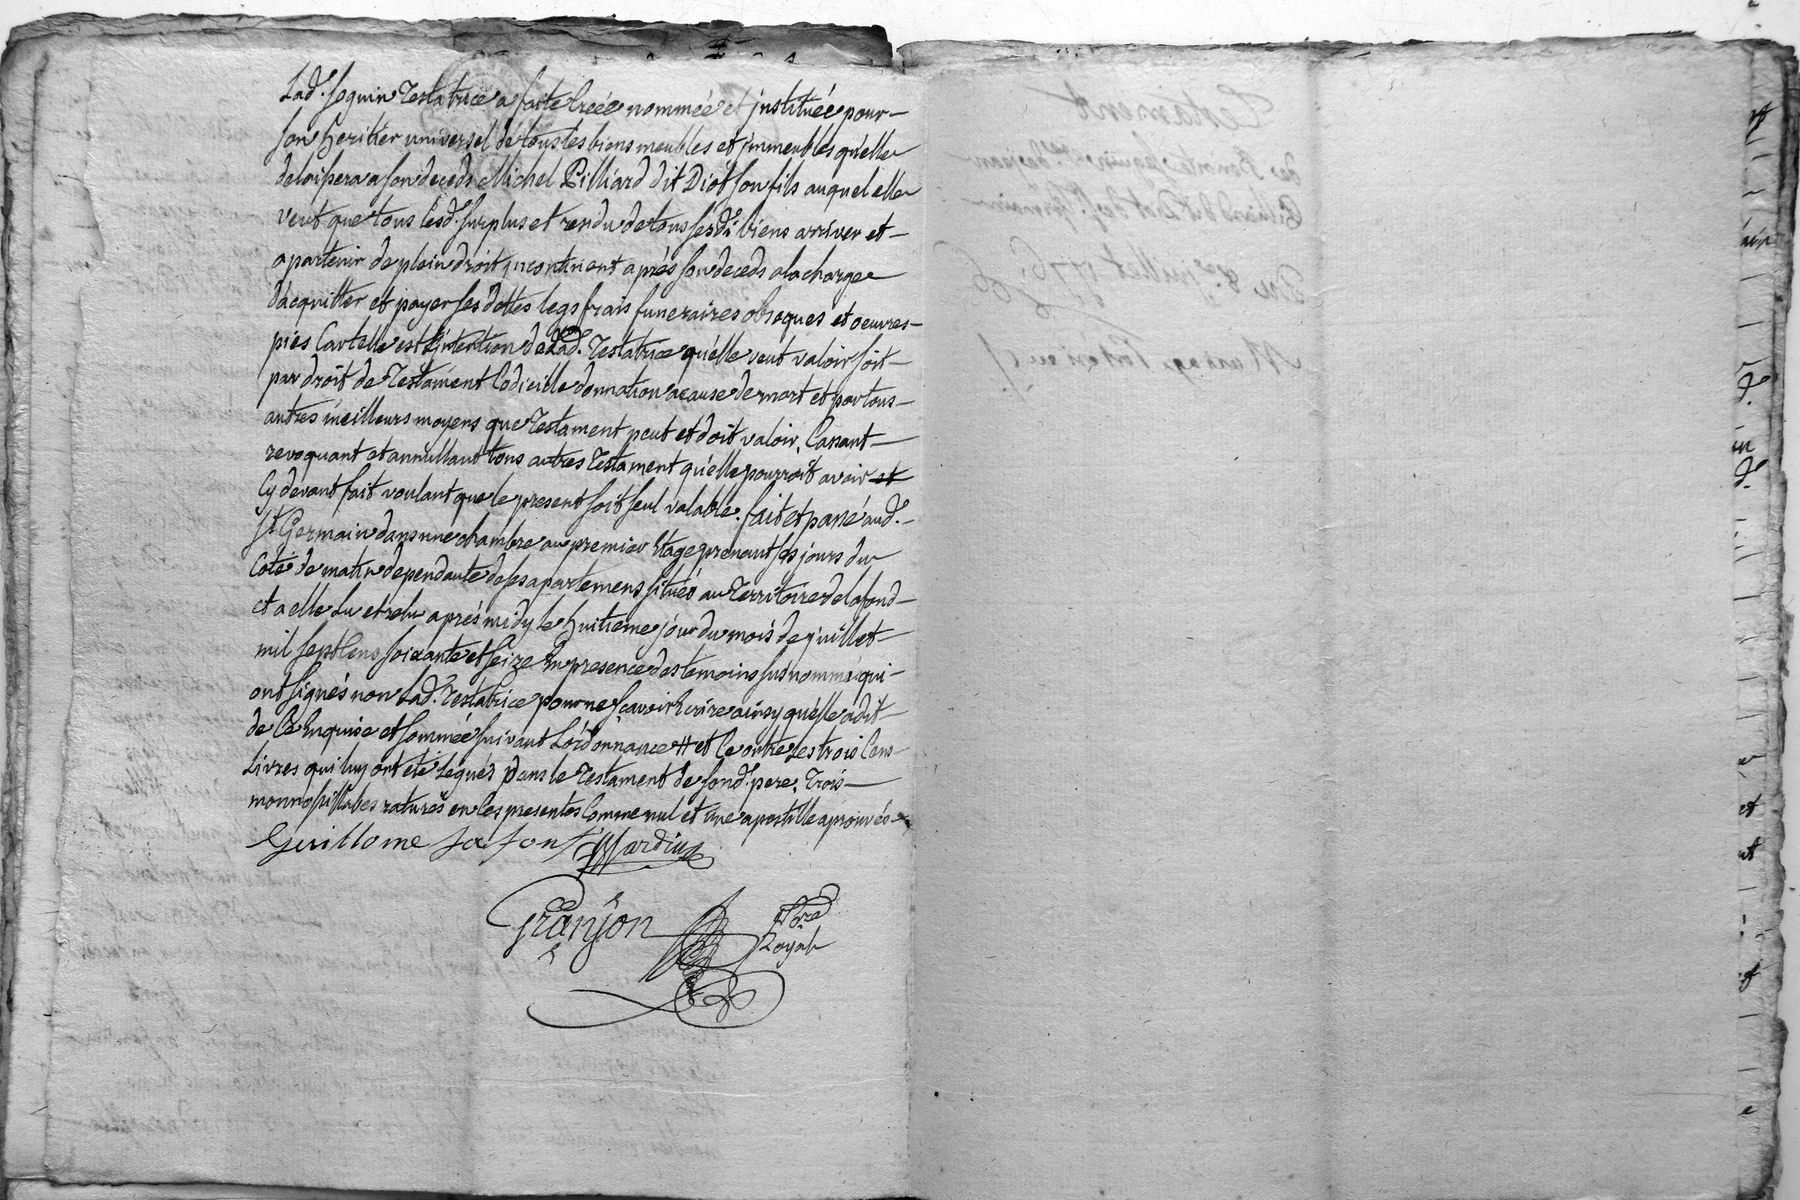 Lad. Seguin Testatrice a faite Creée nommée et jnstituée pour-
son heritier universel de tous les biens meubles et jmmeubles qu'elle
delaissera a son deceds Michel Pilliard dit Diot son fils auquel elle
veut que tous lesd. surplus et rendu de tous sesd. biens arriver et-
apartenir de plein droit jncontinent aprés son deceds a la charge
d'acquitter et payer ses dettes legs frais funeraires obseques et oeuvres-
pies Car telle est L'intention de Lad. Testatrice qu'elle veut valoir soit-
par droit de Testament Codicille donnation acause de mort et par tous-
autres meilleurs moyens que Testament peut et doit valoir, Cassant-
revoquant et annullant tous autres Testament qu'elle pourroit avoir et
Cy devant fait voulant que le present soit seul valable. fait et passé aud.-
St. Germain dans une chambre au premier Etage prenant ses jours du
Coté de matin dependante de ses apartemens situés au Territoire de lafond-
et a elle Lu et relu aprés midy le huitieme jour du mois de juillet-
mil sept Cens soixante et seize En presence des temoins susnommé qui-
ont signés non Lad. Testatrice pour ne sçavoir Ecrire ainsy qu'elle a dit-
de Ce Enquise et sommée suivant L'ordonnance # et Ce outre Les trois Cens-
Livres qui luy ont été Legués dans le Testament de sond. pere, Trois-
monnosillabes raturés en Ces presentes Comme nul et Une apostille aprouvés-
Guillome Lafont Mardius
Granjon Nore
Royal
Testament
Du 8e. juillet 1776